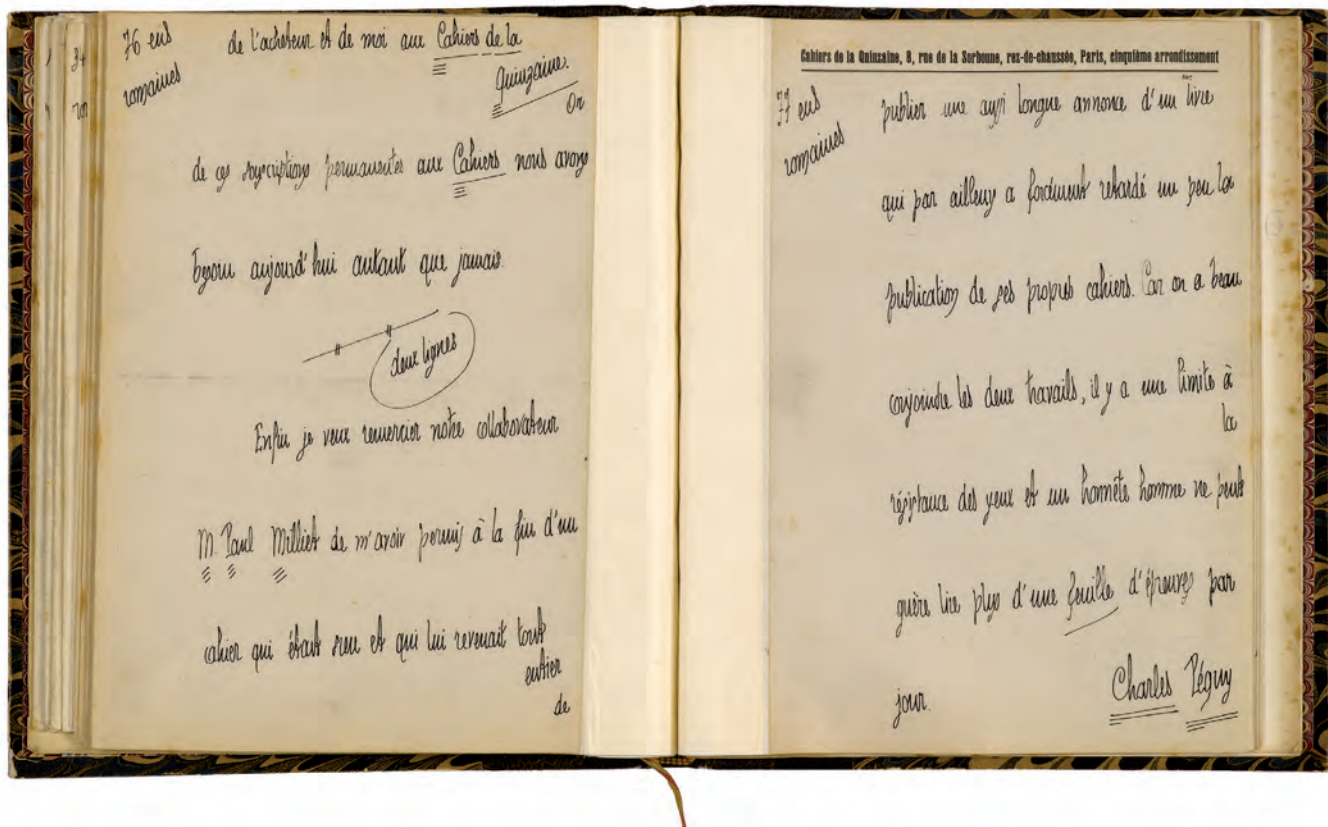 76 eus
romaines
de l'acheteur et de moi aux Cahiers de la
Quinzaine.
Or
de ces souscriptions permanentes aux Cahiers nous avons
besoin aujourd'hui autant que jamais.
deux lignes
Enfin je veux remercier notre collaborateur
M. Paul Milliet de m'avoir permis à la fin d'un
cahier qui était sien et qui lui revenait tout
entier
de
Cahiers de la Quinzaine, 8, rue de la Sorbonne, rez-de-chaussée, Paris, cinquième arrondissement
77 eus
romaines
publier une aussi longue annonce d'un livre
qui par ailleurs a forcément retardé un peu la
publication de ses propres cahiers. Car on a beau
conjoindre les deux travails, il y a une limite à
la
résistance des yeux et un honnête homme ne peut
guère lire plus d'une feuille d'épreuves par
jour.
Charles Péguy